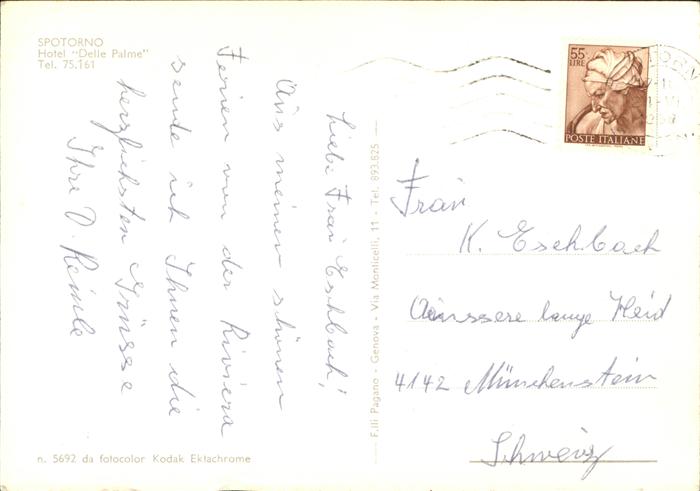 SPOTORNO
Hotel "Delle Palme"
Tel. 75.161
Liebe Frau Eschbach!
Aus meinen schönen
Ferien von der Riviera
sende ich Ihnen die
herzlichsten Grüsse
Ihre D. Reinle
n. 5692 da fotocolor Kodak Ektachrome
F.lli Pagano - Genova - Via Monticelli, 11 - Tel. 893.825
55
LIRE
POSTE ITALIANE
Frau
K. Eschbach
Aeussere lange Heid
4142 Münchenstein
Schweiz